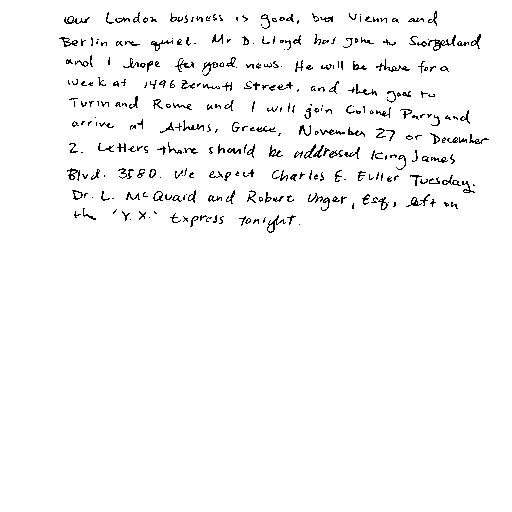 our London business is good, but Vienna and
Berlin are quiet. Mr D. Lloyd has gone to Switzerland
and I hope for good news. He will be there for a
week at 1496 Zermott Street, and then goes to
Turin and Rome and I will join Colonel Parry and
arrive at Athens, Greece, November 27 or December
2. Letters there should be addressed King James
Blvd. 3580. We expect Charles E. Fuller Tuesday.
Dr. L. McQuaid and Robert Unger, Esq., left on
the "Y.X." Express tonight.